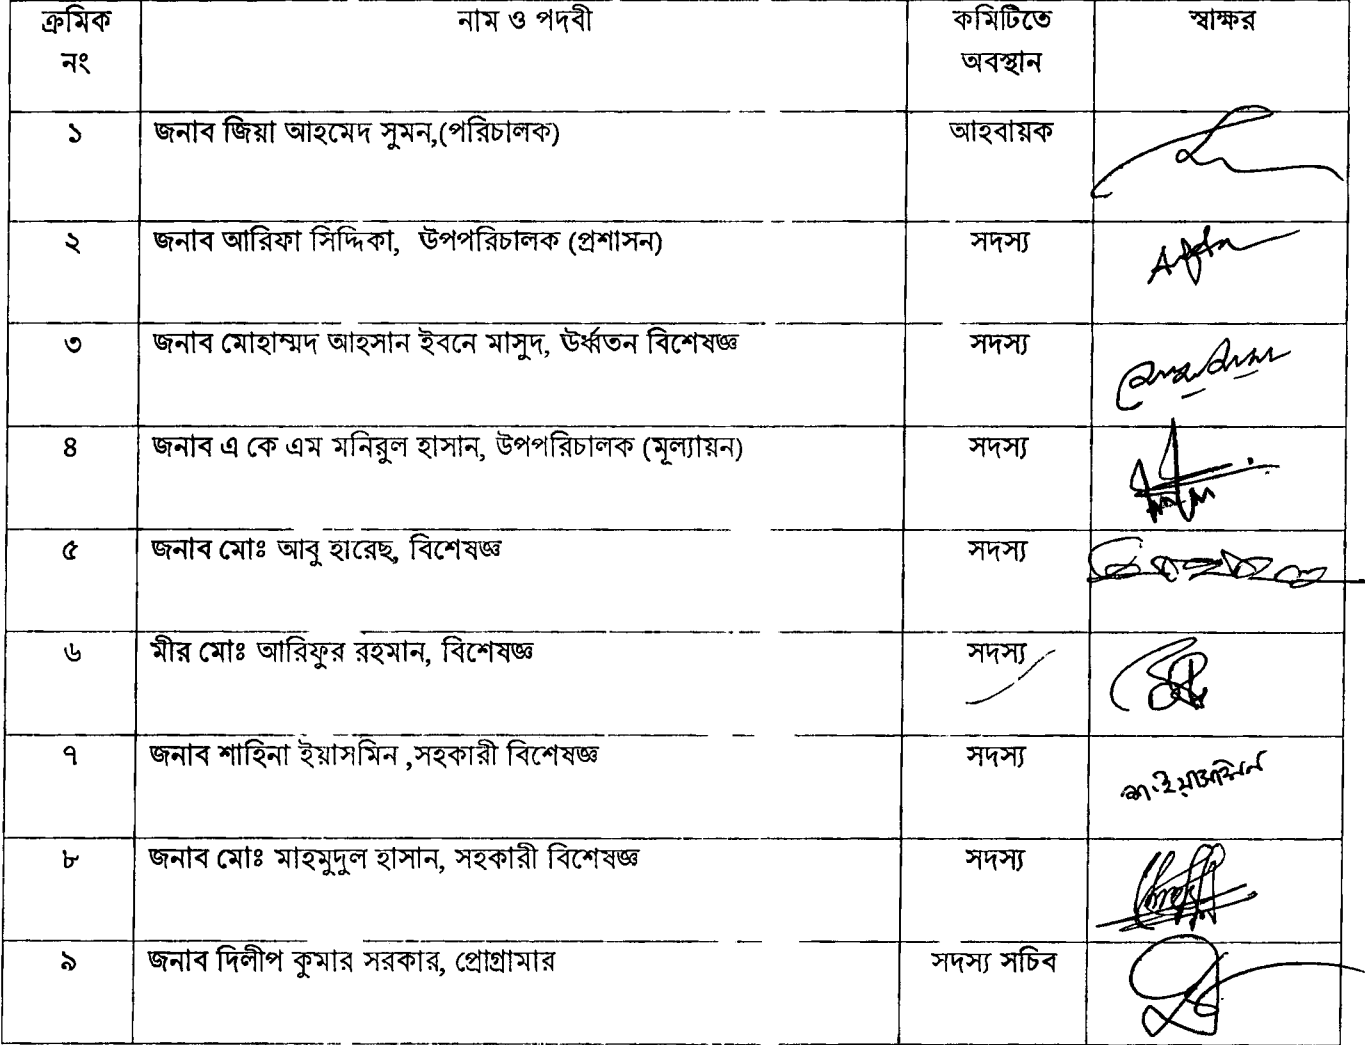 ক্রমিক নং | নাম ও পদবী | কমিটিতে অবস্থান | স্বাক্ষর
১ | জনাব জিয়া আহমেদ সুমন,(পরিচালক) | আহবায়ক
২ | জনাব আরিফা সিদ্দিকা, উপপরিচালক (প্রশাসন) | সদস্য
৩ | জনাব মোহাম্মদ আহসান ইবনে মাসুদ, উর্ধ্বতন বিশেষজ্ঞ | সদস্য
৪ | জনাব এ কে এম মনিরুল হাসান, উপপরিচালক (মূল্যায়ন) | সদস্য
৫ | জনাব মোঃ আবু হারেছ, বিশেষজ্ঞ | সদস্য
৬ | মীর মোঃ আরিফুর রহমান, বিশেষজ্ঞ | সদস্য
৭ | জনাব শাহিনা ইয়াসমিন ,সহকারী বিশেষজ্ঞ | সদস্য | শা.ইয়াসমিন
৮ | জনাব মোঃ মাহমুদুল হাসান, সহকারী বিশেষজ্ঞ | সদস্য
৯ | জনাব দিলীপ কুমার সরকার, প্রোগ্রামার | সদস্য সচিব